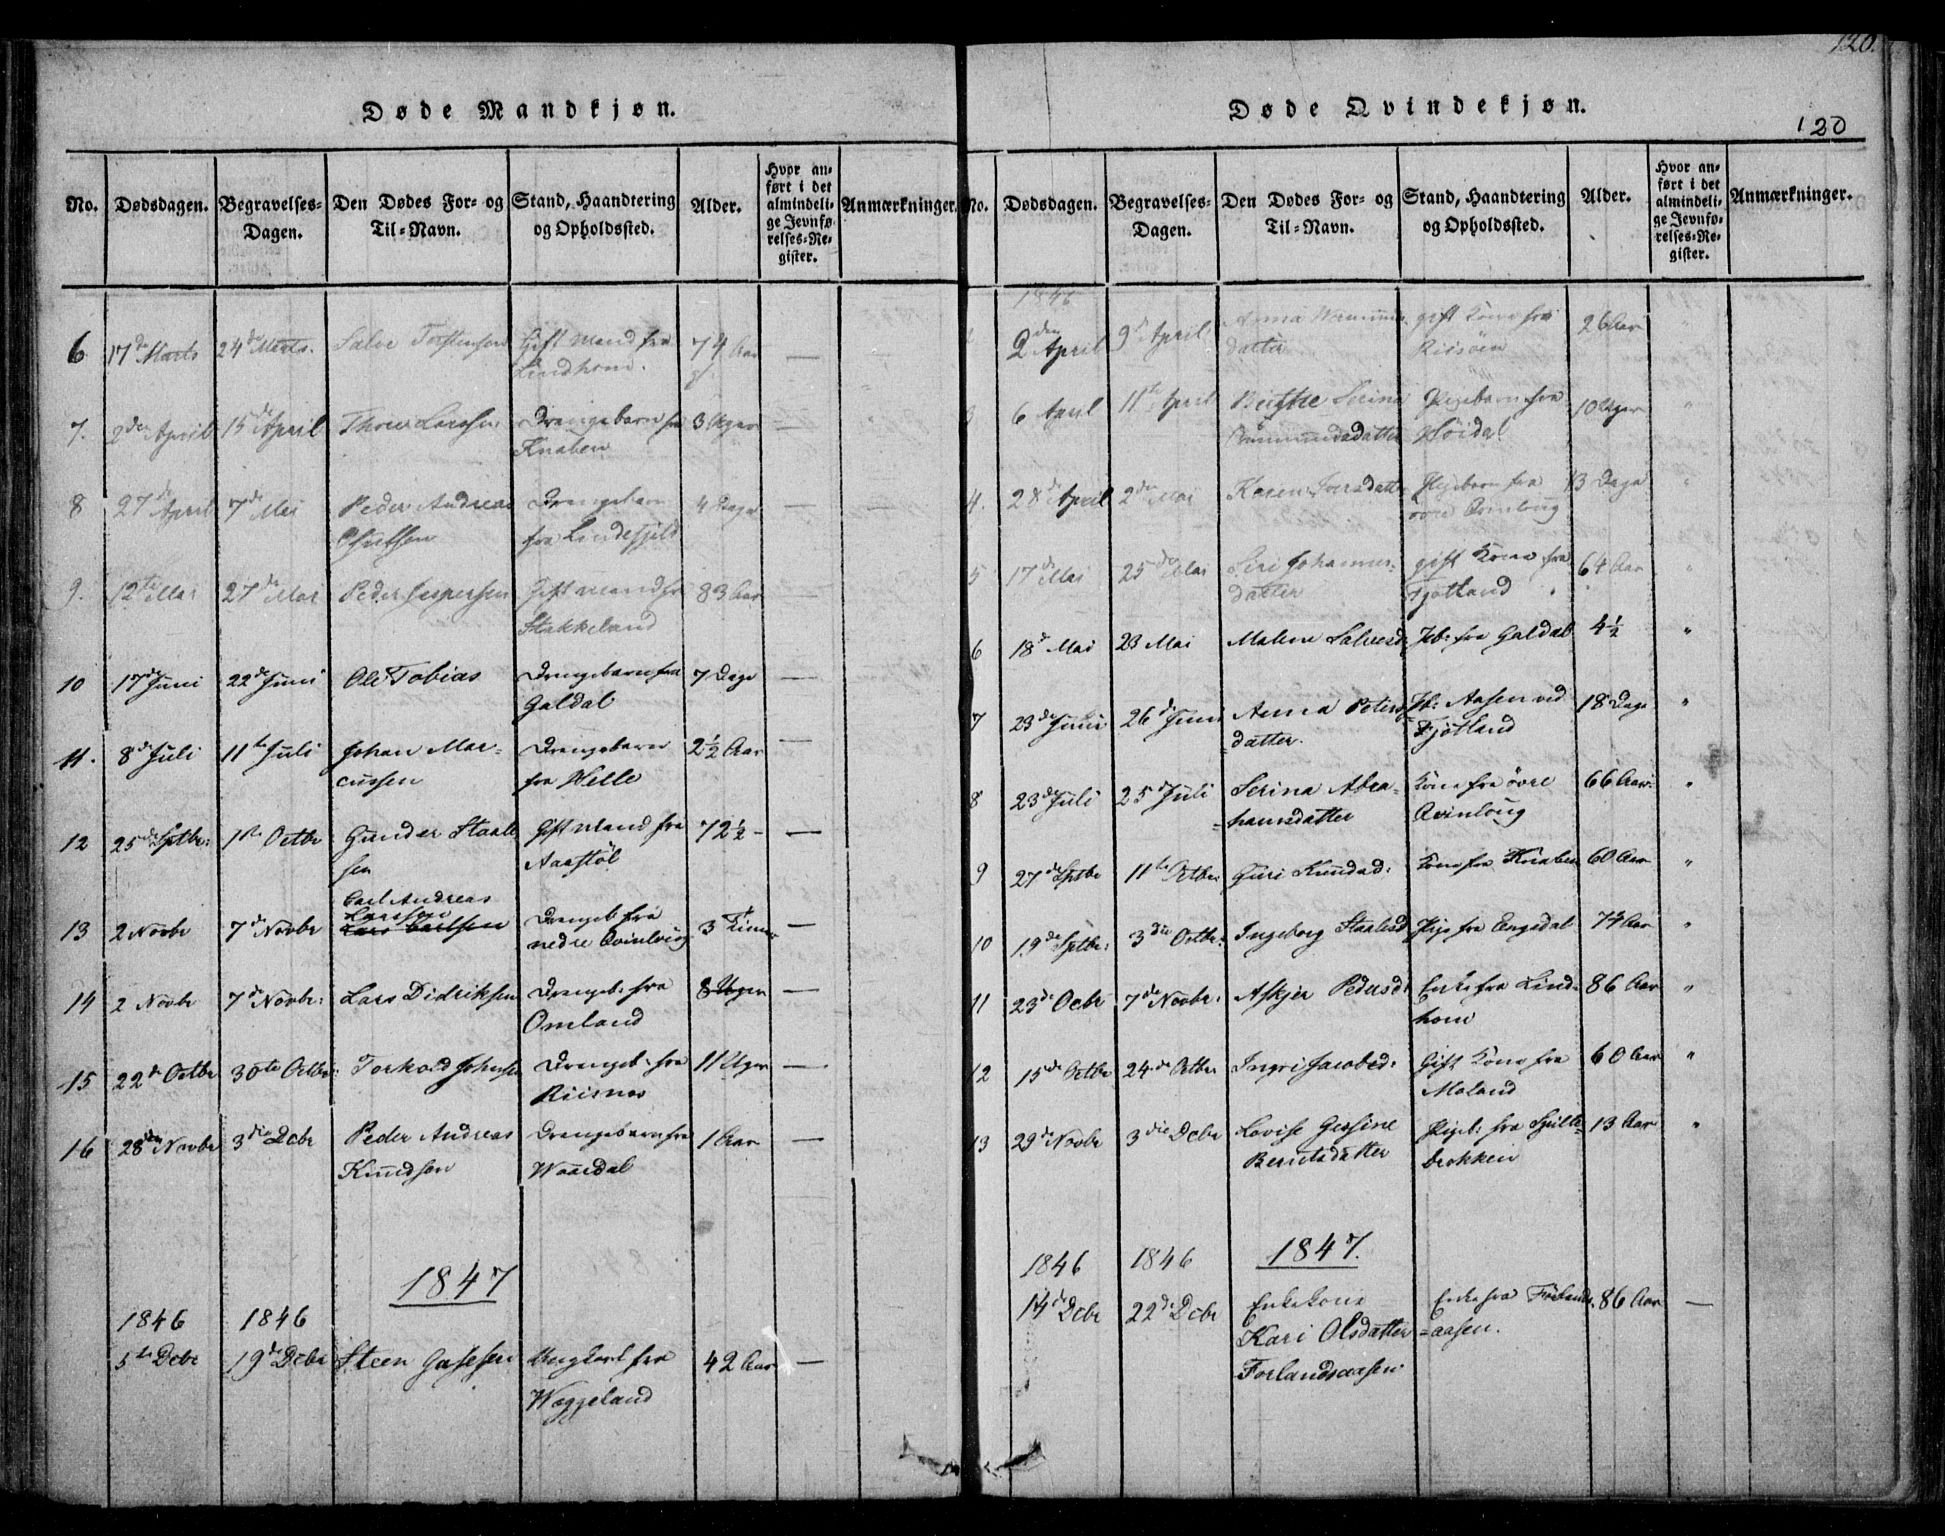 Døde Mandkjøn.
No. Dødsdagen. Begravelses-Dagen. Den Dødes For- og Til-Navn. Stand, Haandtering og Opholdssted. Alder. Hvor anført i det almindelige Jevnførelses-Register. Anmærkninger.
6 17de Marts 24de Marts. Salve Torstensen Gift Mand fra 74 Aar —
Lindhom.
7. 9den April 15de April Drengebarn fra 3 Uger —
Knaben
8 27de April 7de Mai Peder Andreas Drengebarn 4 Dage —
fra Lindefjeld
9. 12te Mai 27de Mai Peder Jespersen Gift Mand fra 83 Aar —
Stakkeland
10 17de Juni 22de Juni Ole Tobias Drengebarn fra 7 Dage —
Galdal
11. 8de Juli 11te Juli Johan Mar- Drengebarn 2½ Aar —
cussen fra Helle
12 25de Septbr: 1ste Octbr Gunder Staale Gift Mand fra 72½ - —
sen Aastøl
Carl Andreas
Larssen
13 2 Novbr 7de Novbr Lars Carlsen Drengeb. fra 3 Timer —
nedre Qvinlaug
14 2 Novbr 7de Novbr: Lars Didriksen Drengeb: fra 8 Uger —
Omland
15 22de Octbr 30te Octbr: Torkald Johnsen Drengeb: fra 11 Uger —
Riisnes
16 28den Novbr 3die Dcbr Peder Andreas Drengebarn fra 1 Aar —
Knudsen Waardal
1847
1846 1846
5te Dcbr 19de Dcbr Steen Ungkarl fra 42 Aar —
Weggeland
120.
120
Døde Qvindekjøn.
No. Dødsdagen. Begravelses-Dagen. Den Dødes For- og Til-Navn. Stand, Haandtering og Opholdssted. Alder. Hvor anført i det almindelige Jevnførelses-Register. Anmærkninger.
1846
2den April 9de April Anna gift Kone fra 26 Aar "
datter Riisöen
6 April 11te April Berthe Serine Pigebarn fra 10 Uger "
Høidal
4. 28de April 2den Mai Karen Pigebarn fra 13 Dage "
øvre Qvinlaug
5 17de Mai 25de Mai Siri Johannes- gift Kone fra 64 Aar "
datter Fjotland
6 18de Mai 23 Mai Malene Salvesd: Pb: fra Galdal 4½ "
7 23de Juni 26de Juni Anna Peters- Pb: Aasen ved 18 Dage "
datter. Fjotland
8 23de Juli 25de Juli Serina Abra- Kone fra øvre 66 Aar: "
hamsdatter Qvinlaug
9 27de Septbr 11te Octbr: Guri Knudsd: Kone fra Knaben 60 Aar "
10 19de Septbr: 3die Octbr: Ingeborg Staalesd Pige fra Engedal 74 Aar "
11 23de Ocbr 7de Novbr: Askjer Pedersd: Enke fra Lind- 86 Aar "
hom
12 15de Octbr 24de Octbr: Ingri Jacobsd: Gift Kone fra 60 Aar "
Moland
13 29de Novbr 3die Dcbr Lovise Gesine Pigeb: fra Spilte- 13 Aar "
Berntsdatter brokken
1846 1846 1847.
14de Dcbr 22de Dcbr Enkekone Enke fra Förlands 86 Aar —
Kari Olsdatter =aasen.
Forlandsaasen.